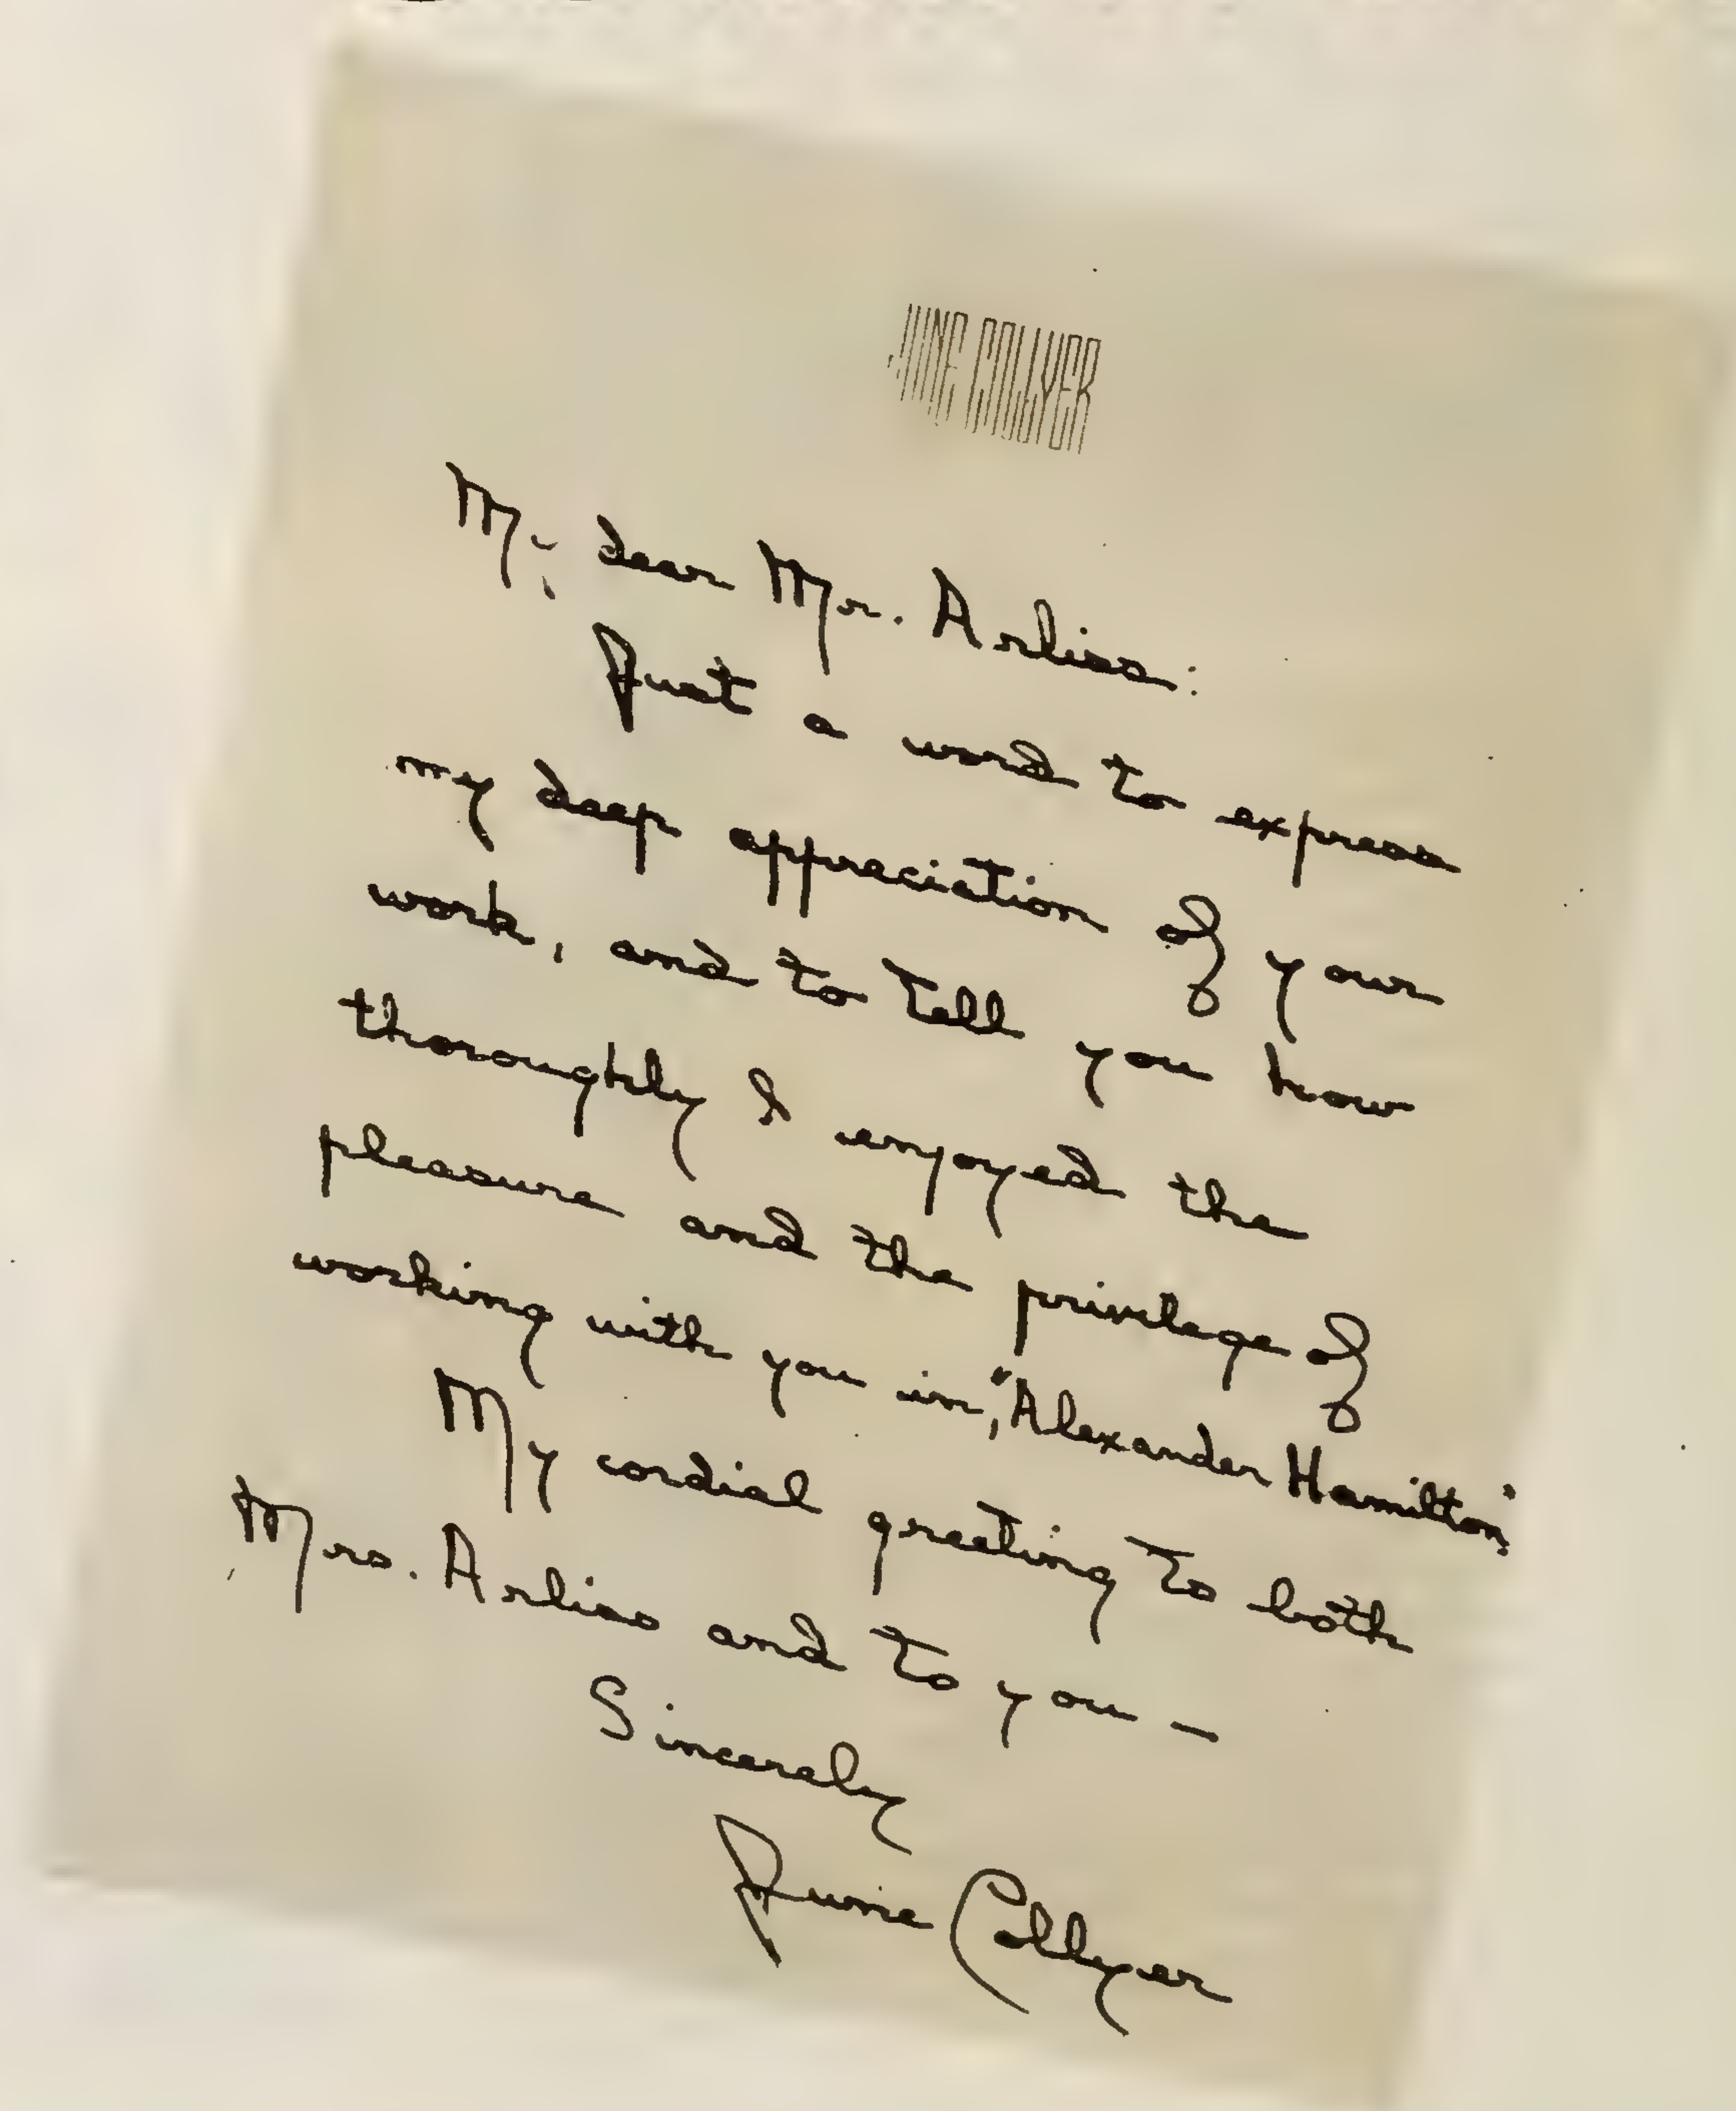 JUNE COLLYER
My dear Mr. Arliss:
Just a word to express
my deep appreciation of your
work, and to tell you how
thoroughly I enjoyed the
pleasure and the privilege of
working with you in, "Alexander Hamilton".
My cordial greeting to both
Mrs. Arliss and to you —
Sincerely
June Collyer